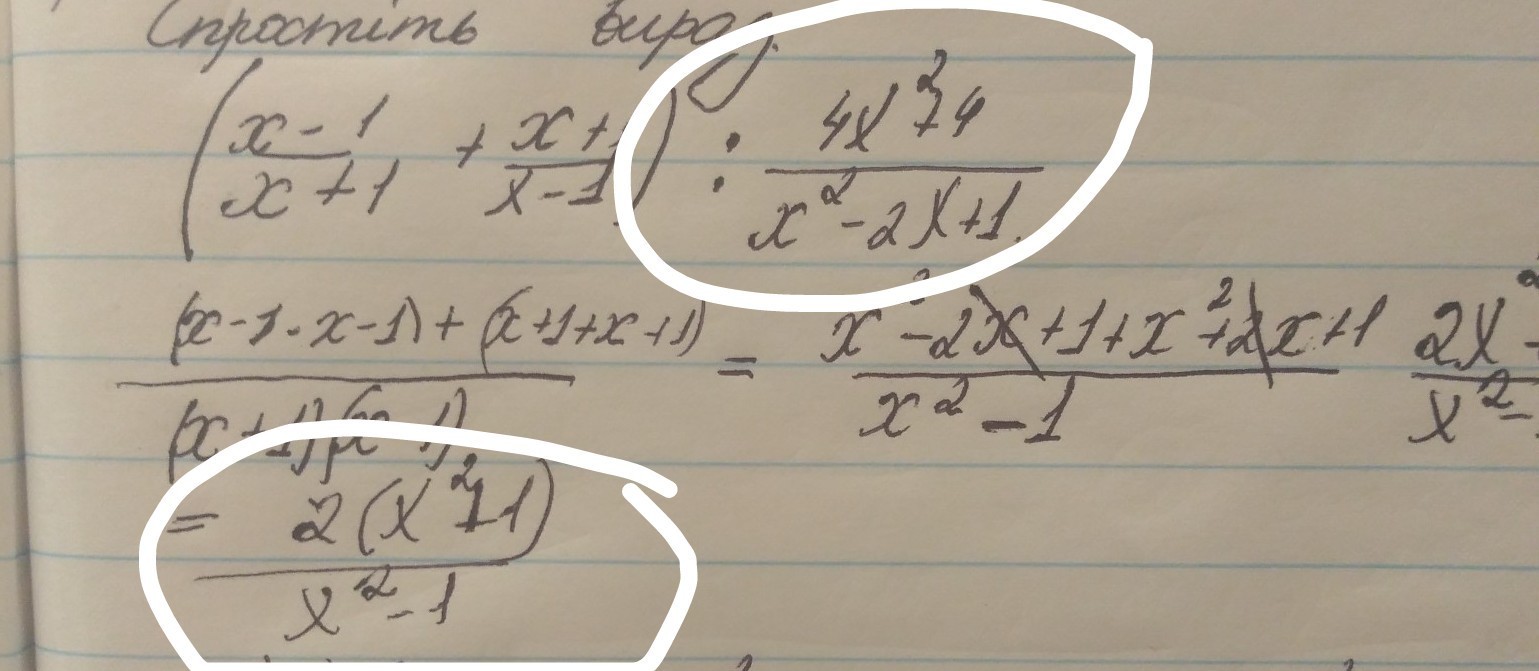 Спростіть вираз.
(x-1/x+1 + x+1/x-1) : 4x²+4/x²-2x+1.
(x-1·x-1)+(x+1+x+1)/(x+1)(x-1) = x²-2x+1+x²+2x+1/x²-1 2x²/x²-
= 2(x²+1)/x²-1